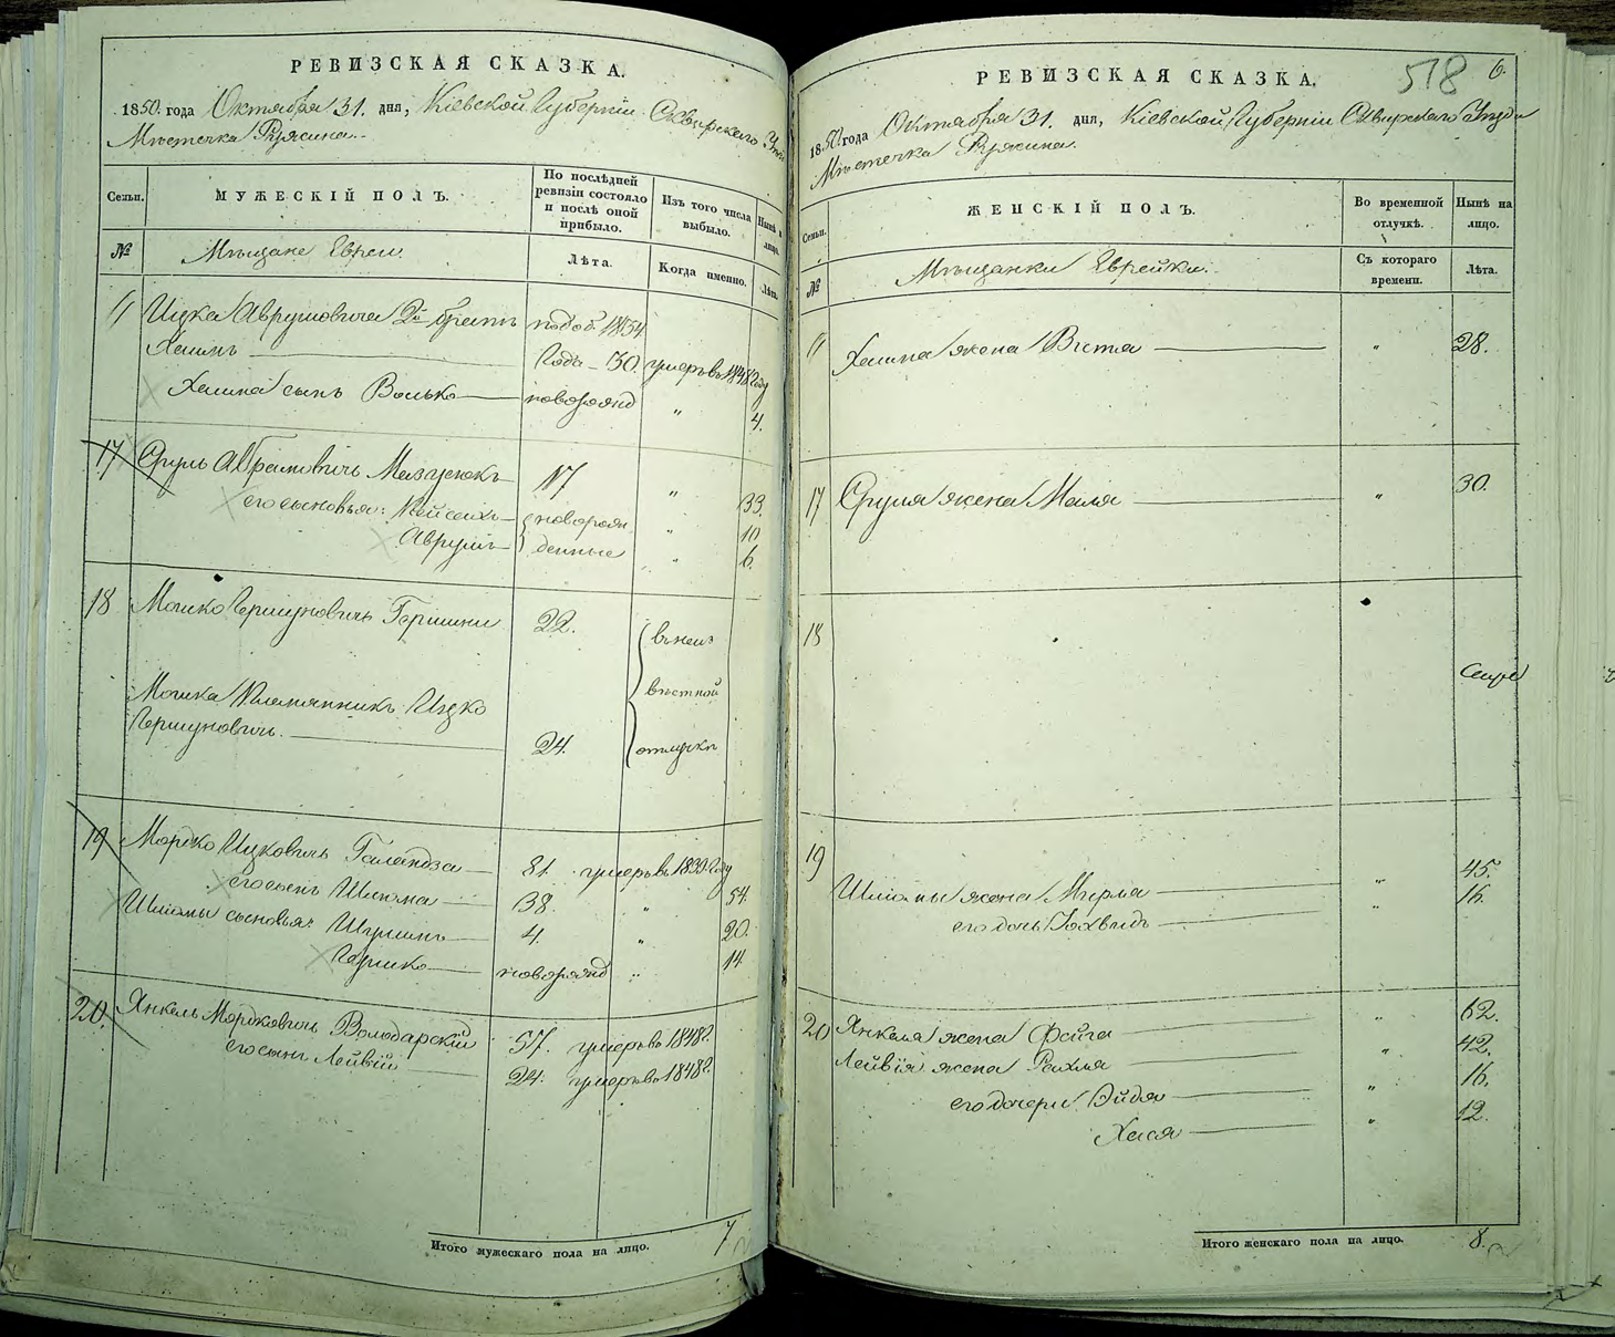 РЕВИЗСКАЯ СКАЗКА.
1850. года Октября 31. дня, Кіевской Губерніи Сквирского
Мѣстечка Ружина.
Семьи.
МУЖЕСКІЙ ПОЛЪ.
По послѣдней ревизіи состояло и послѣ оной прибыло.
Изъ того числа выбыло.
Нынѣ на лицо.
№
Мѣщане Евреи.
Лѣта.
Когда именно.
Лѣта.
Ицка Аврумовича 2й братъ
Хаимъ — Года — 30. умеръ въ 1848 Году
Хаима сынъ Волько — новорожд " 4.
17 Сруль Абрамовичъ — 17 " 33.
его сыновья: — новорож " 10
Аврумъ — денные " 6.
18 Мошко Гершуновичъ Гершини 22. въ неиз
вѣстной
Мошка Племянникъ Ицко
Гершуновичъ. — 24. отлучкѣ
19 Мордко Ицковичъ — 81. умеръ въ 1839 Году
его сынъ Шлиома — 38. " 54.
Шлиомы сыновья: — 4. " 20.
Гершко — новорожд " 14
20. Янкель Мордковичъ Володарскій 57. умеръ въ 1848 г.
его сынъ Лейвій — 24. умеръ въ 1848 г.
Итого мужескаго пола на лицо. 7
518 6.
РЕВИЗСКАЯ СКАЗКА.
1850 года Октября 31. дня, Кіевской Губерніи Сквирского Уѣзда
Мѣстечка Ружина.
Семьи.
ЖЕНСКІЙ ПОЛЪ.
Во временной отлучкѣ.
Нынѣ на лицо.
№
Мѣщанки Еврейки.
Съ котораго времени.
Лѣта.
Хаима жена — " 28.
17 Сруля жена Маля — " 30.
18
19
Шлиомы жена Мирля — " 45.
его дочь — " 16.
20 Янкеля жена Фейга — " 62.
Лейвія жена Рахля — " 42.
его дочери — " 16.
Хася — " 12.
Итого женскаго пола на лицо. 8.